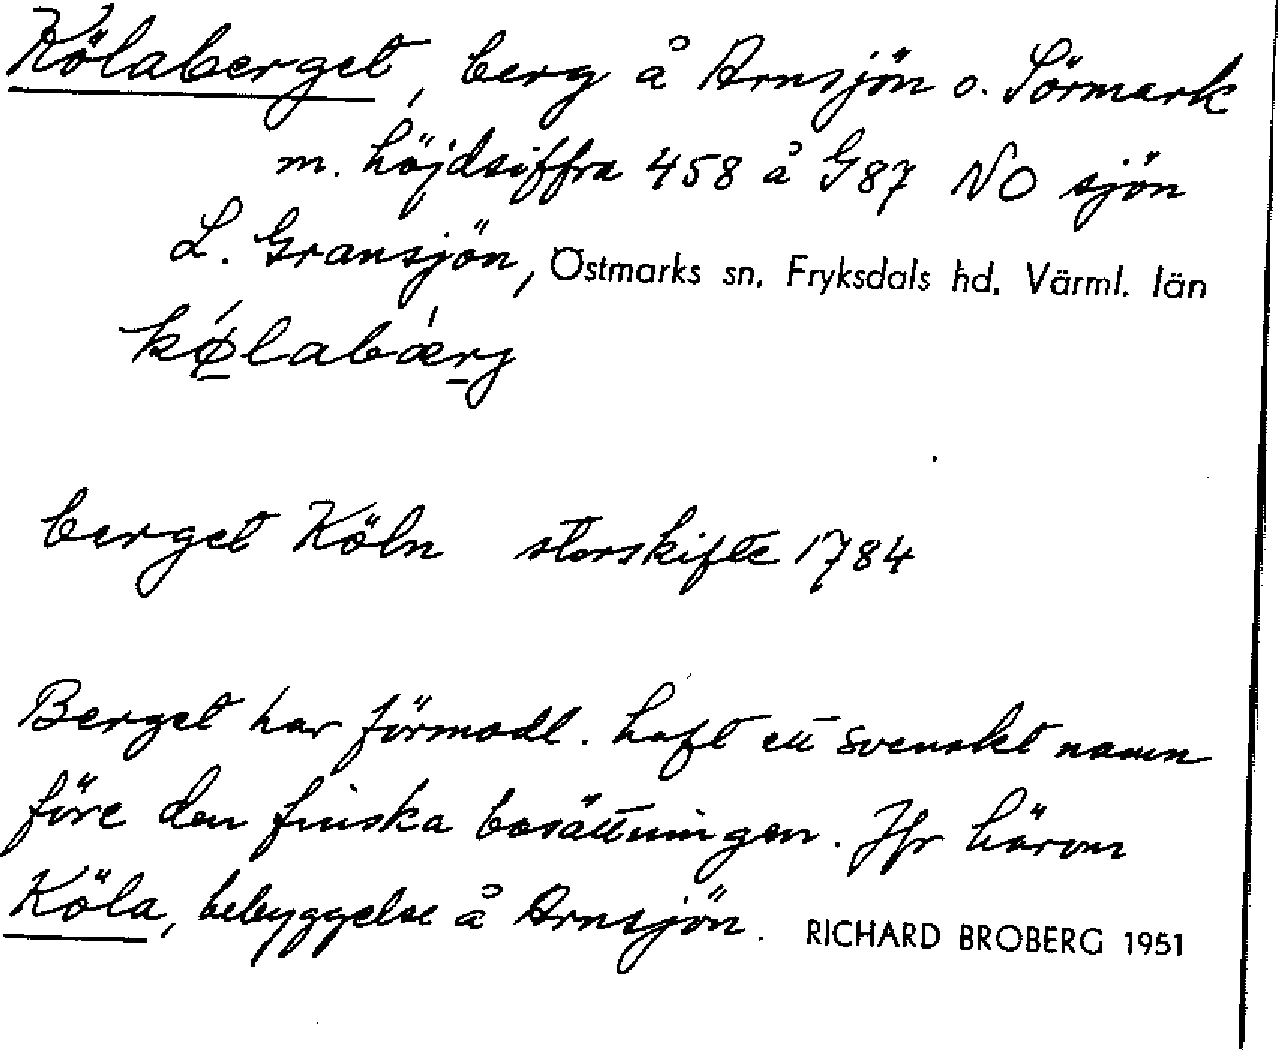 Kölaberget, berg å Arnsjön o. Sörmark
m. höjdsiffra 458 å G87 NO sjön
L. Gransjön, Östmarks sn. Fryksdals hd. Värml. län
kø̀labæ̀rj
berget Köln storskifte 1784
Berget har förmodl. haft ett svenskt namn
före den finska bosättningen. Jfr härom
Köla, bebyggelse å Arnsjön. RICHARD BROBERG 1951